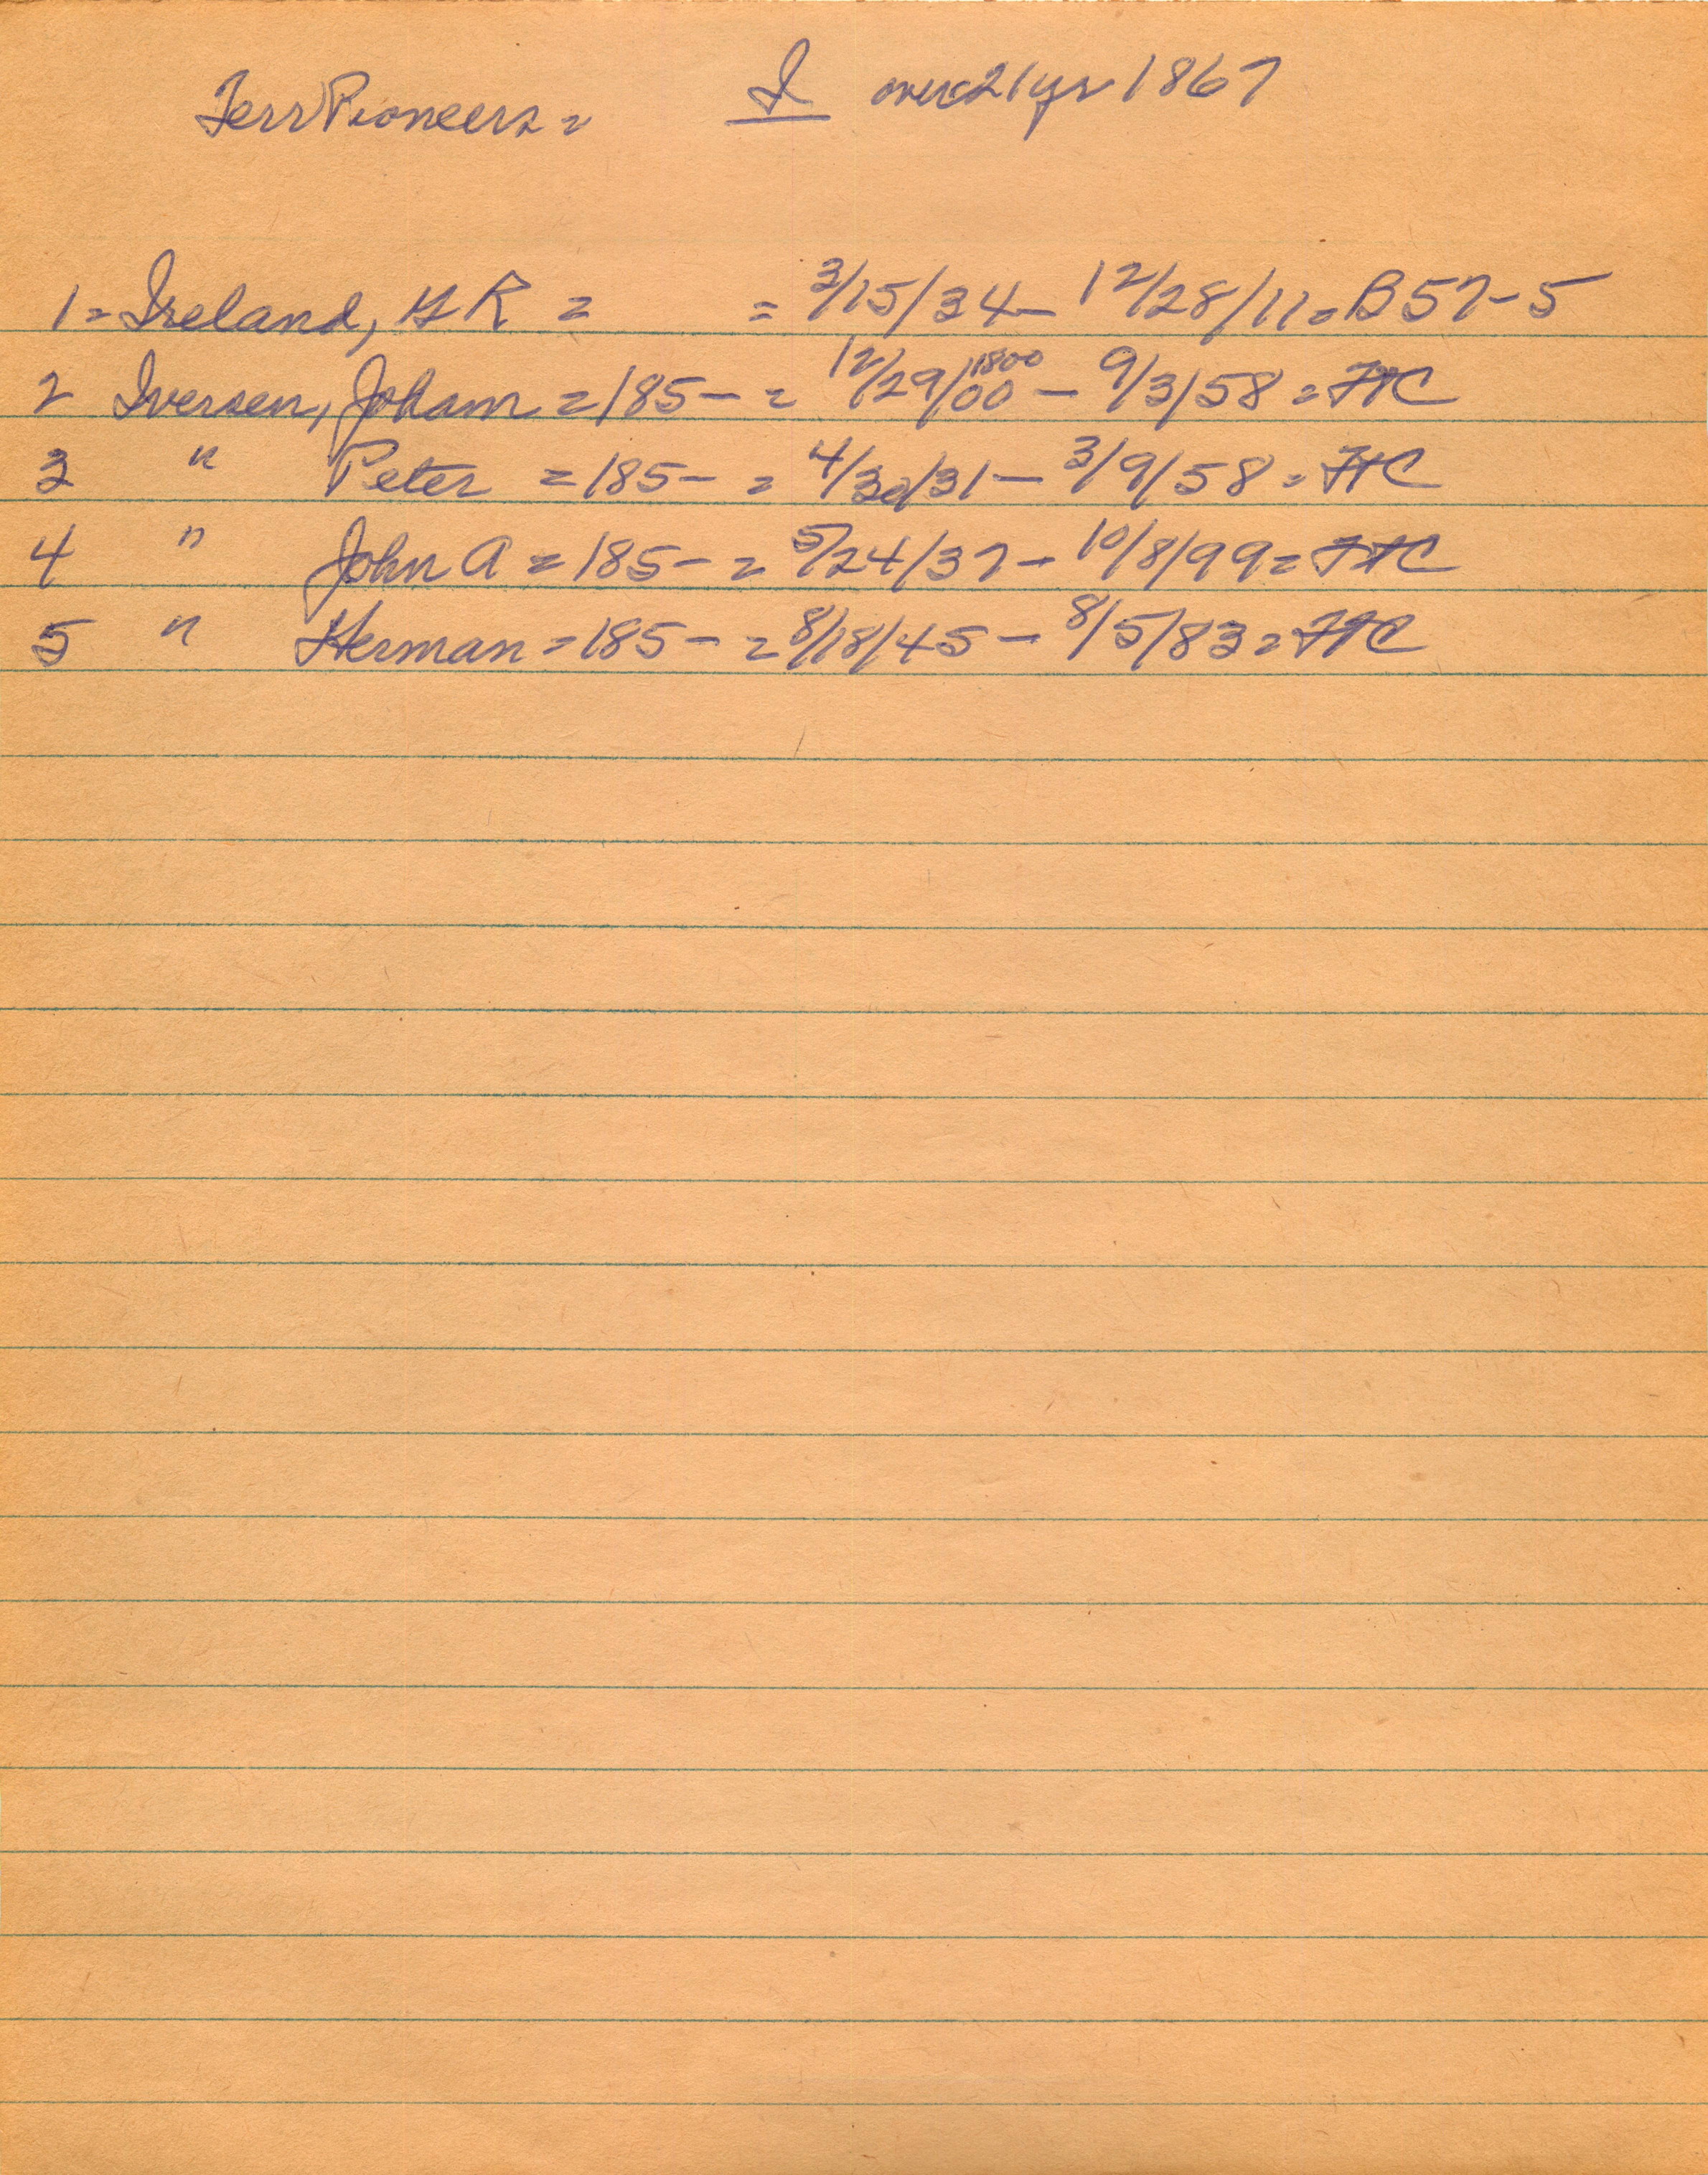 Terr Pioneers = I over 21 yr 1867
1 = Ireland, R = = 3/15/34 - 12/28/11 = B57-5
2 Iversen, Joham = 185- = 12/29/00 1800 - 9/3/58 = FTC
3 " Peter = 185- = 4/30/31 - 3/9/58 = FTC
4 " John A = 185- = 5/24/37 - 10/8/99 = FTC
5 " Herman = 185- = 8/18/45 - 8/5/83 = FTC